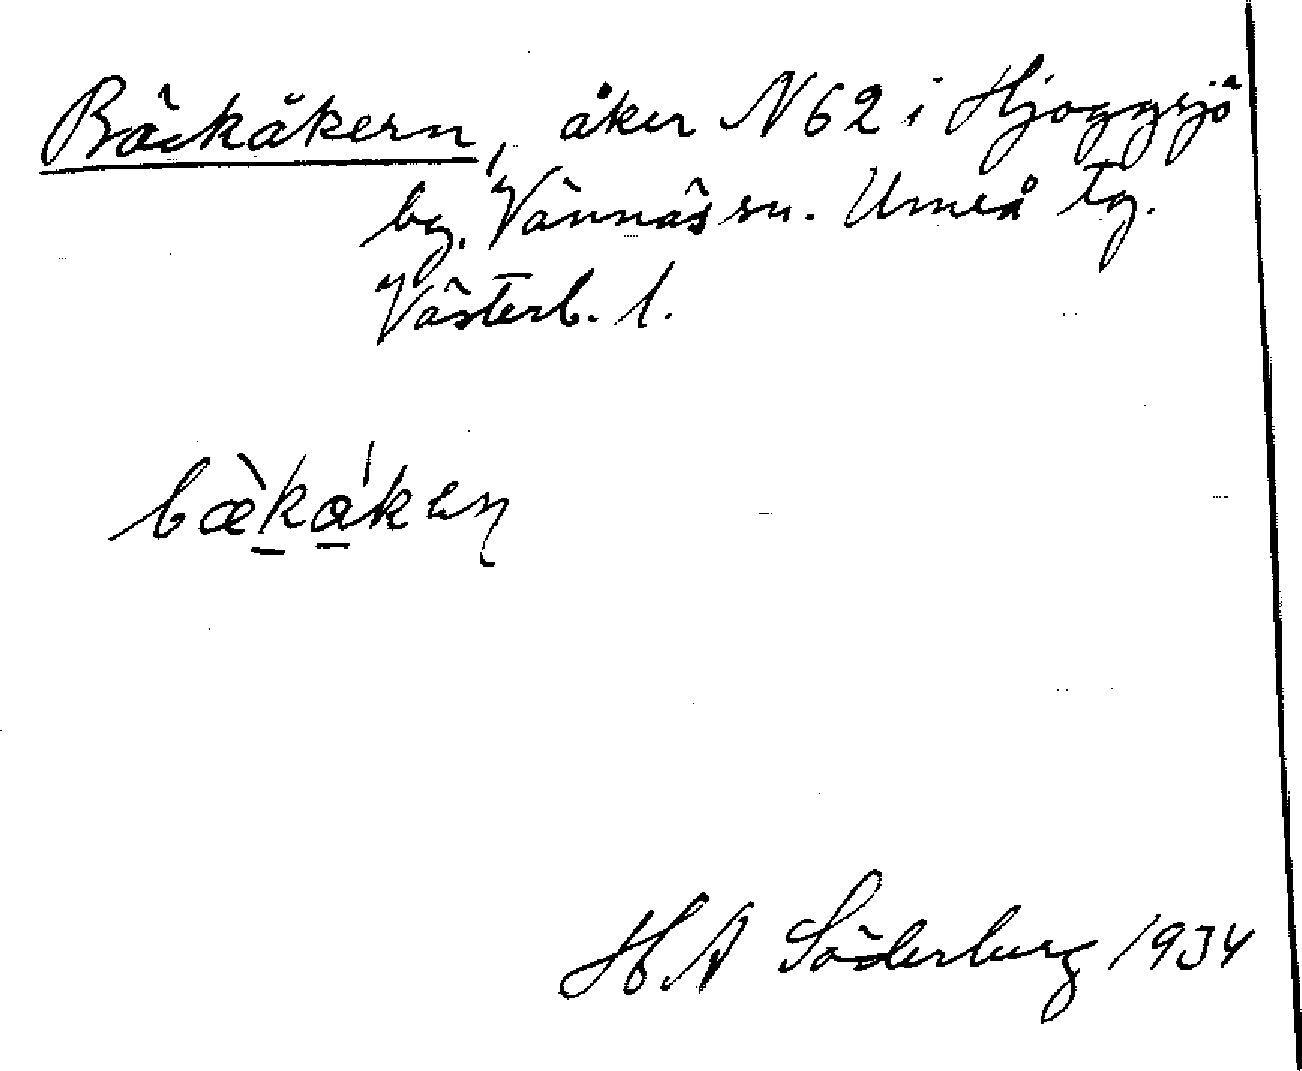 Bäckåkern, åker N62 i Hjoggsjö
by. Vännäs sn. Umeå tg.
Västerb. l.
bæ̀ka̍ken̥
H.A Söderberg 1934